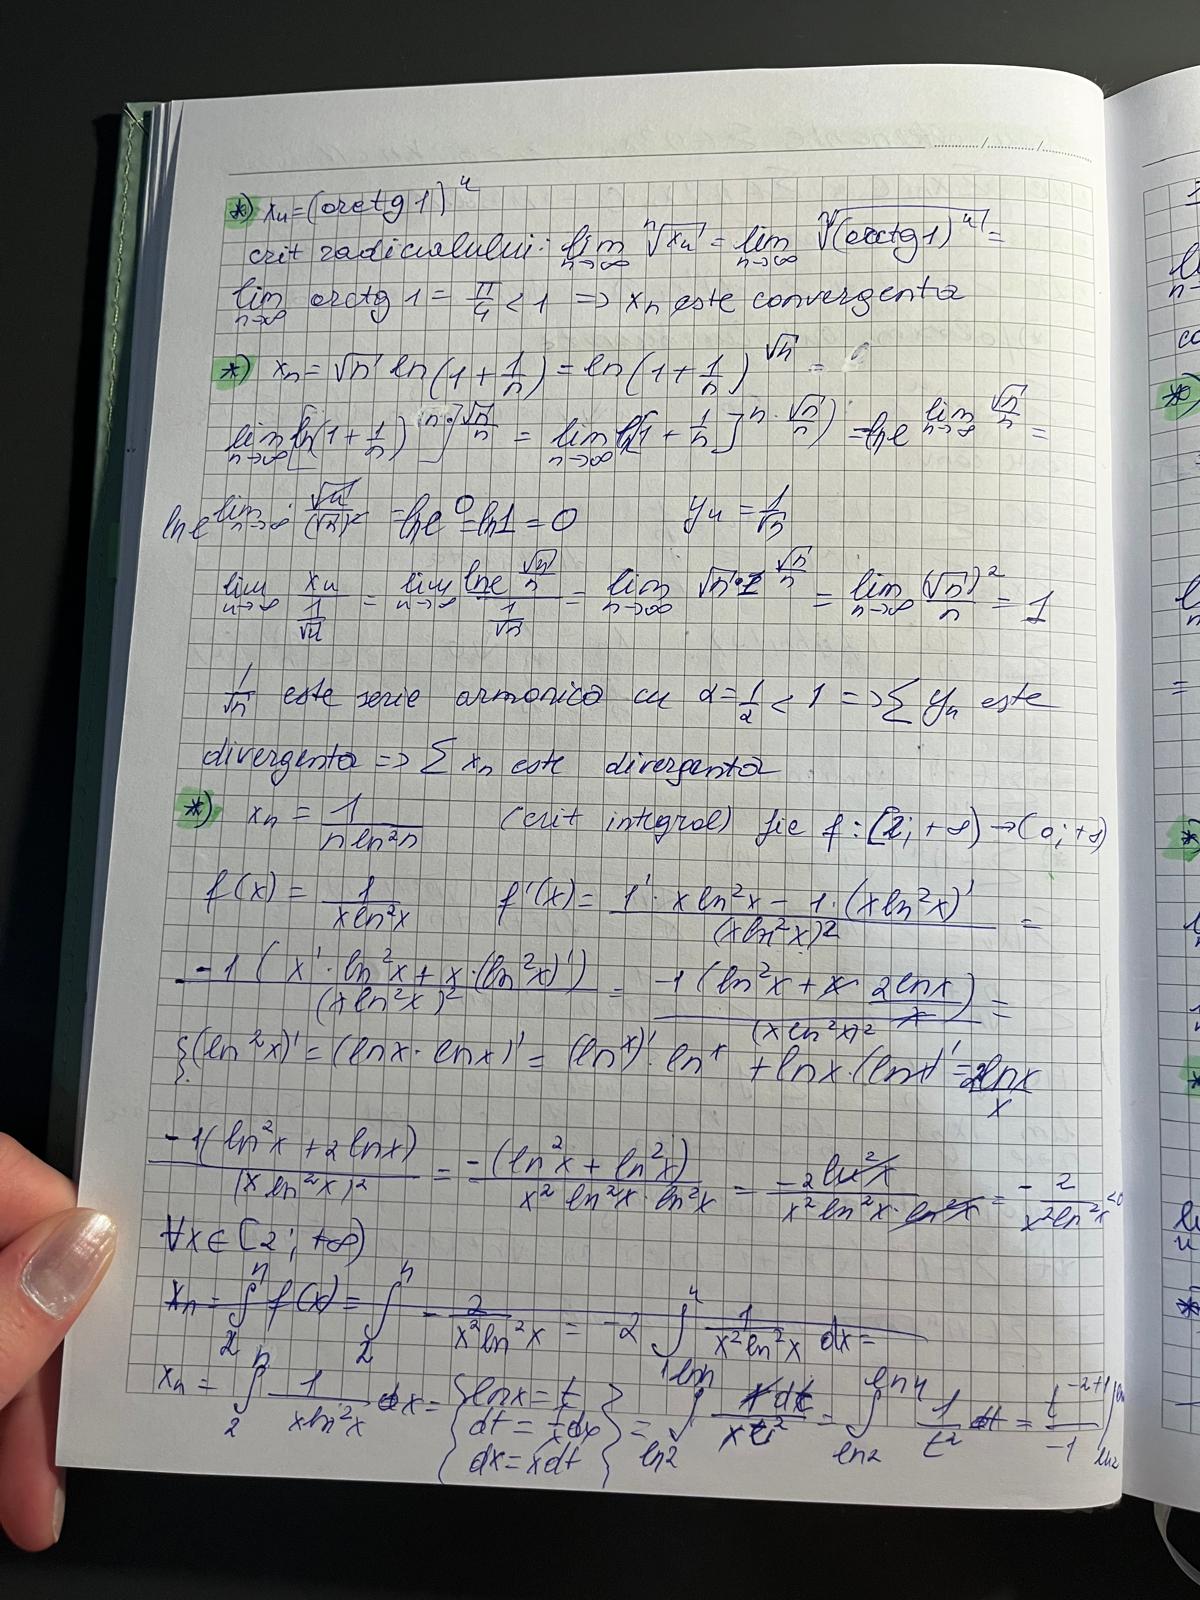 *) xₙ = (arctg 1)ⁿ
crit radicalului: lim n→∞ ⁿ√xₙ = lim n→∞ ⁿ√(arctg 1)ⁿ =
lim n→∞ arctg 1 = π/4 < 1 => xₙ este convergenta
*) xₙ = √n ln(1 + 1/n) = ln(1 + 1/n)^√n =
lim n→∞ ln[(1 + 1/n)^n]^(√n/n) = lim n→∞ ln[1 + 1/n]^(n · √n/n) = ln e^(lim n→∞ √n/n) =
ln e^(lim n→∞ √n/(√n)²) = ln e⁰ = ln 1 = 0 yₙ = 1/√n
lim n→∞ xₙ/(1/√n) = lim n→∞ ln e^(√n/n)/(1/√n) = lim n→∞ √n · 1 √n/n = lim n→∞ (√n)²/n = 1
1/√n este serie armonica cu α = 1/2 < 1 => Σ yₙ este
divergenta => Σ xₙ este divergenta
*) xₙ = 1/(n ln²n) (crit integral) fie f : [2; +∞) → (0; +∞)
f(x) = 1/(x ln²x) f'(x) = (1' · x ln²x − 1 · (x ln²x)')/(x ln²x)² =
−1(x' · ln²x + x · (ln²x)')/(x ln²x)² = −1(ln²x + x · 2lnx/x)/(x ln²x)² =
{(ln²x)' = (lnx · lnx)' = (lnx)' · lnx + lnx · (lnx)' = 2lnx/x
−1(ln²x + 2 lnx)/(x ln²x)² = −(ln²x + ln²x)/(x² ln²x · ln²x) = −2 ln²x/(x² ln²x · ln²x) = −2/(x² ln²x) <0
∀x ∈ [2; +∞)
xₙ = ∫₂ⁿ f(x) = ∫₂ⁿ −2/(x² ln²x) = −2 ∫ⁿ 1/(x² ln²x) dx =
xₙ = ∫₂ⁿ 1/(x ln²x) dx = {lnx = t
dt = 1/x dx
dx = x dt} = ∫_ln2^ln n x dt/(x t²) = ∫_ln2^ln n 1/t² dt = t^(−2+1)/−1 |_ln2